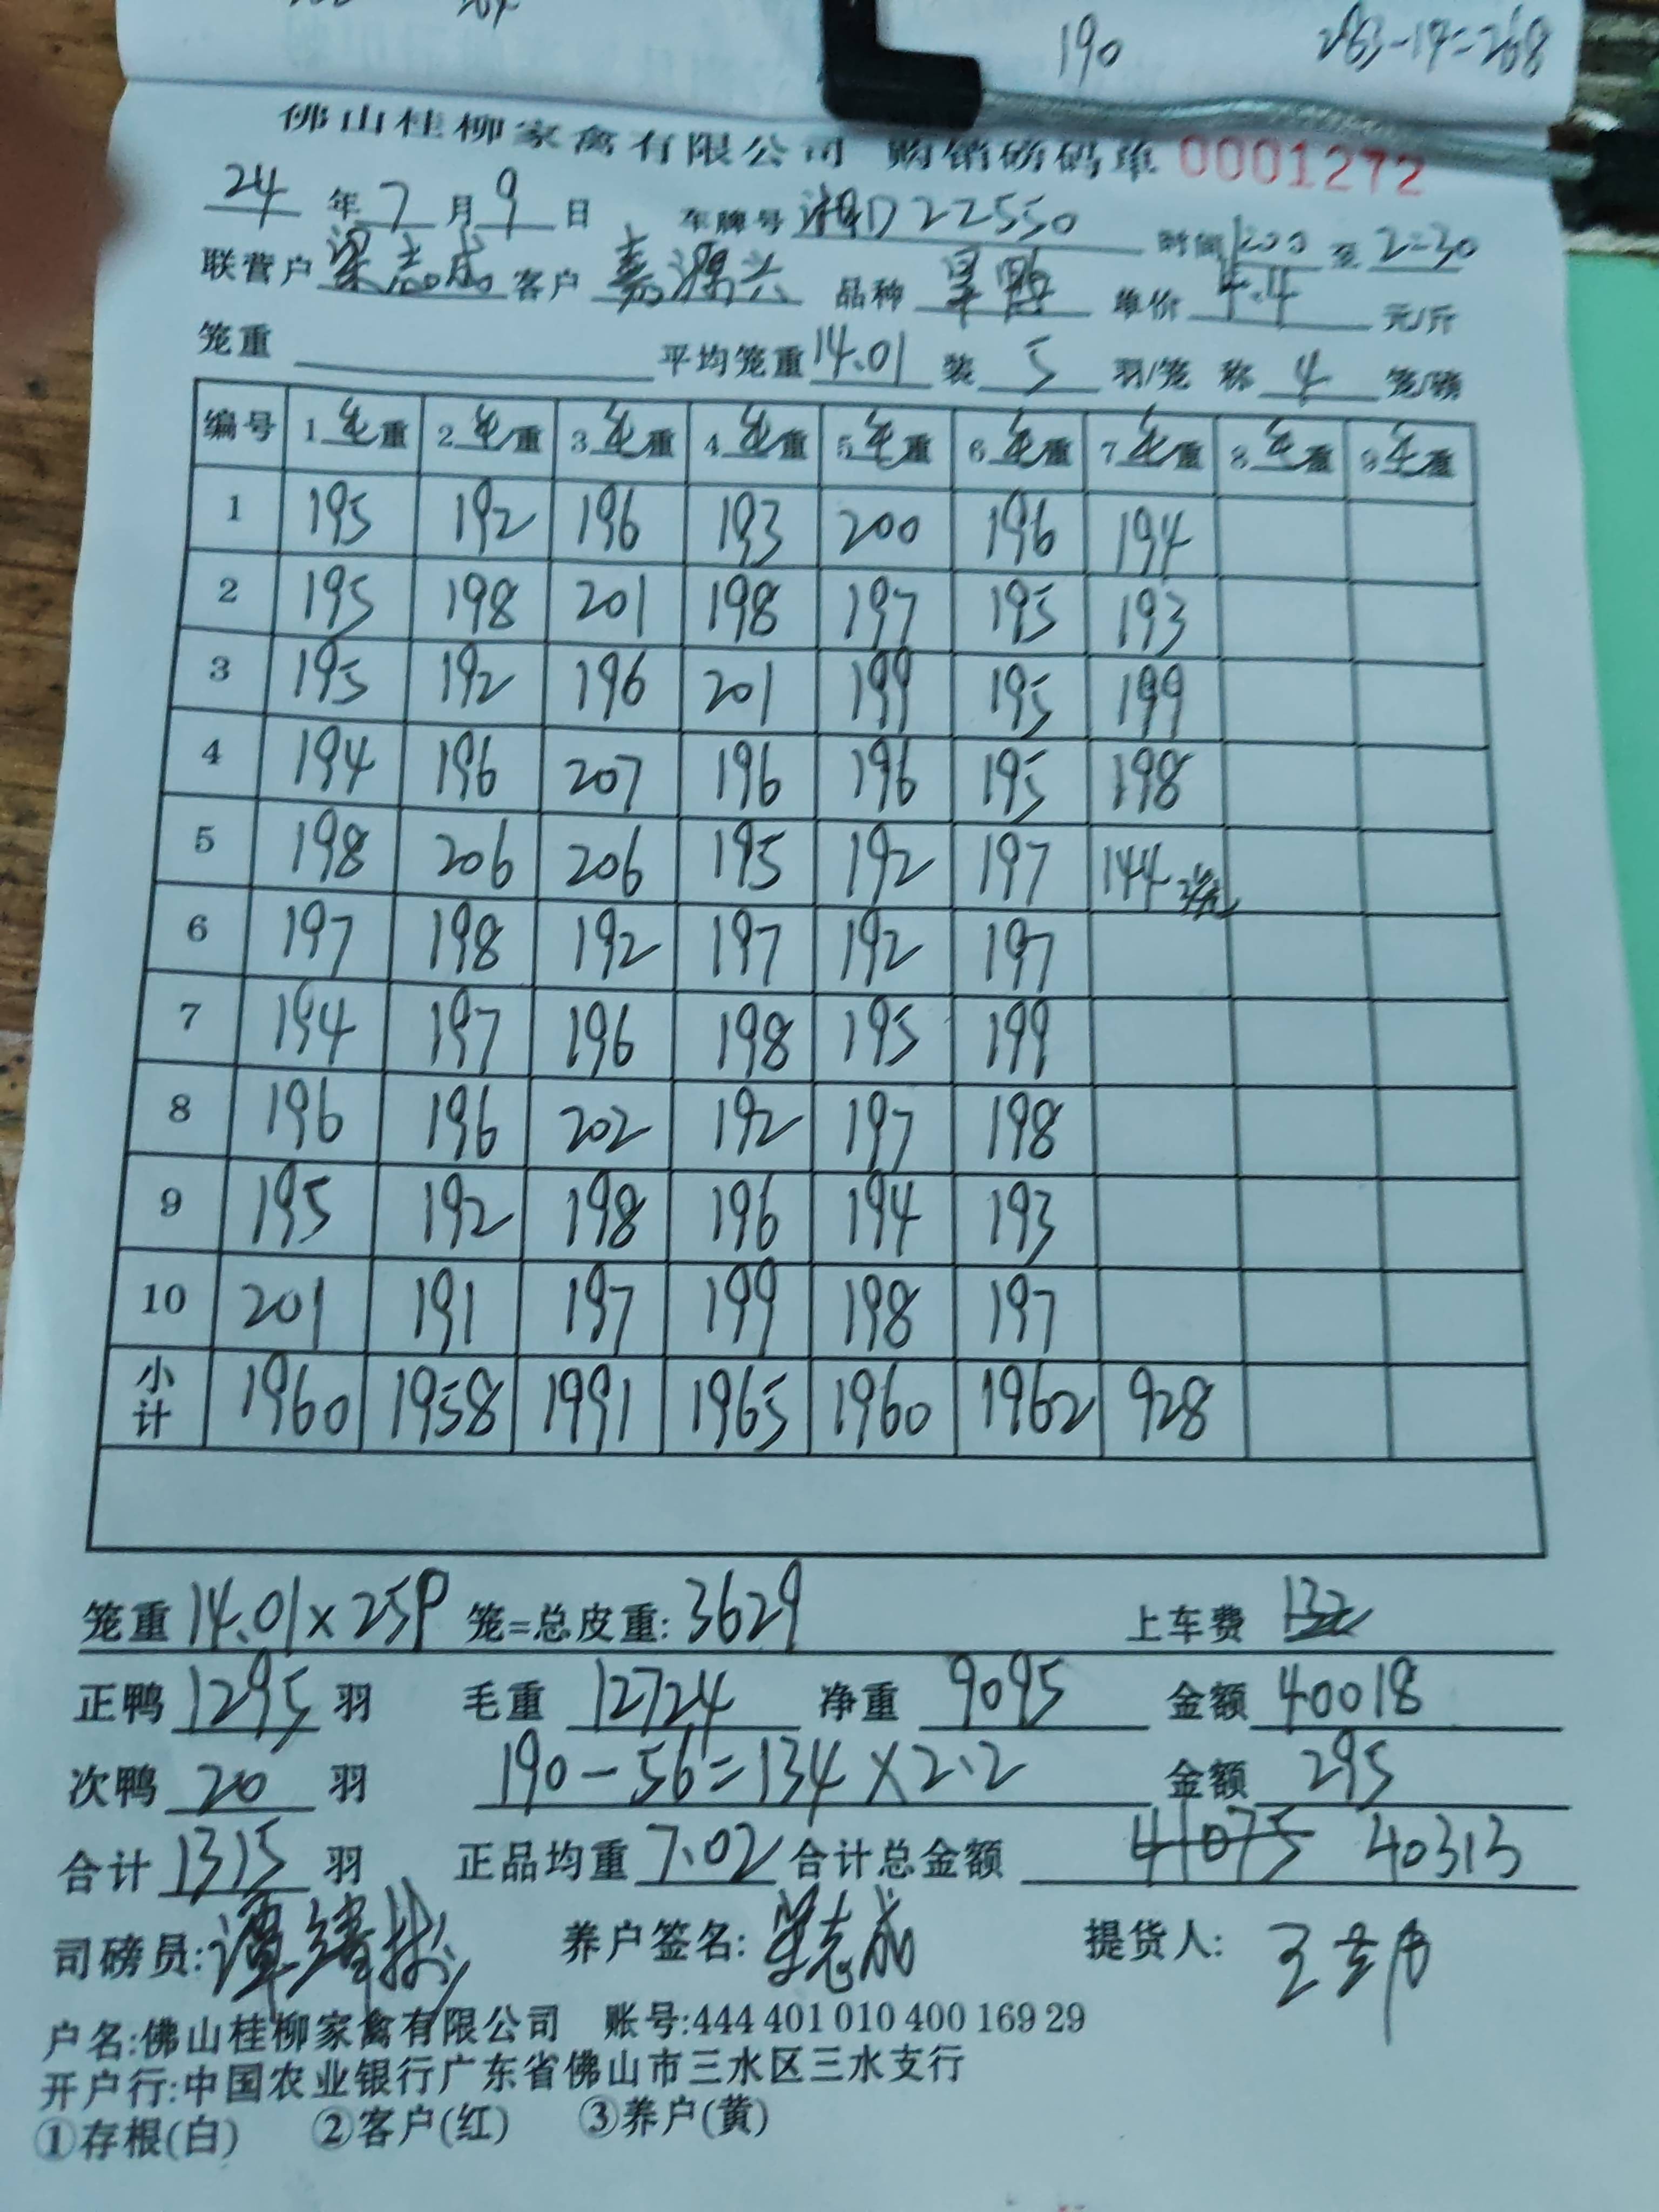 190 283-14=268
佛山桂柳家禽有限公司 购销磅码单 0001272
24年7月9日 车牌号湘D22550 时间 至2:30
联营户梁志成 客户嘉源兴 品种 单价4.4元/斤
笼重 平均笼重14.01装5羽/笼 称4笼/磅
编号 1毛重 2毛重 3毛重 4毛重 5毛重 6毛重 7毛重 8毛重 9毛重
1 195 192 196 193 200 196 194
2 195 198 201 198 197 195 193
3 195 192 196 201 199 195 199
4 194 196 207 196 196 195 198
5 198 206 206 195 192 197 144 3笼
6 197 198 192 197 192 197
7 194 197 196 198 195 199
8 196 196 202 192 197 198
9 195 192 198 196 194 193
10 201 191 197 199 198 197
小计 1960 1958 1991 1965 1960 1962 928
笼重14.01×259笼=总皮重:3629 上车费132
正鸭1295羽 毛重12724 净重9095 金额40018
次鸭20羽 190-56=134×2.2 金额295
合计1315羽 正品均重7.02合计总金额 41075 40313
司磅员: 养户签名:梁志成 提货人:
户名:佛山桂柳家禽有限公司 账号:444 401 010 400 169 29
开户行:中国农业银行广东省佛山市三水区三水支行
①存根(白) ②客户(红) ③养户(黄)